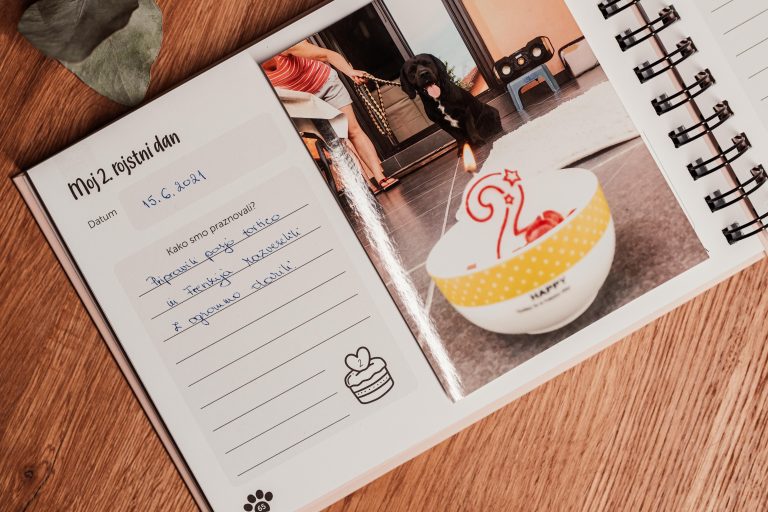 Moj 2. rojstni dan
Datum
15.6.2021
Kako smo praznovali?
Pripravili pasjo tortico
in Frenkija razveselili
z ogromno daril!
2
65
HAPPY